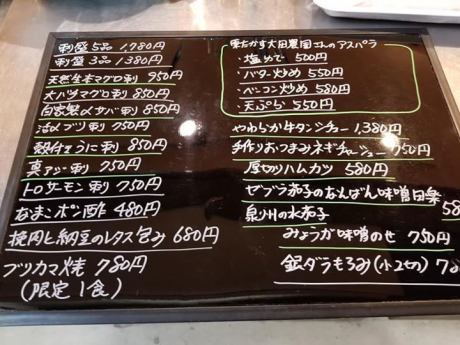 刺盛 5品 1,780円
刺盛 3品 1380円
天然生本マグロ刺 950円
大バチマグロ刺 850円
自家製〆サバ刺 850円
活〆ブリ刺 750円
殻付生うに刺 850円
真アジ刺 750円
トロサーモン刺 750円
なまこポン酢 480円
挽肉と納豆のレタス包み 680円
ブリカマ焼 780円
(限定1食)
東たかす大田農園さんのアスパラ
・塩ゆで 500円
・バター炒め 550円
・ベーコン炒め 580円
・天ぷら 550円
やわらか牛タンシチュー 1,380円
手作りおつまみネギチャーシュー 750円
厚切りハムカツ 580円
ゼブラ茄子のなんばん味噌田楽
泉州の水茄子 58
みょうが味噌のせ 750円
銀ダラもろみ(小2切) 78